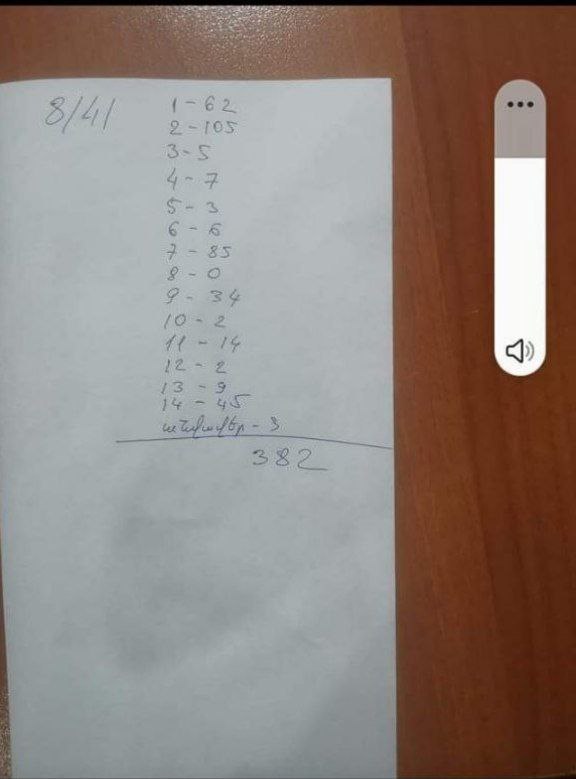 8/41
1 - 62
2 - 105
3 - 5
4 - 7
5 - 3
6 - 6
7 - 85
8 - 0
9 - 34
10 - 2
11 - 14
12 - 2
13 - 9
14 - 45
անվավեր - 3
382